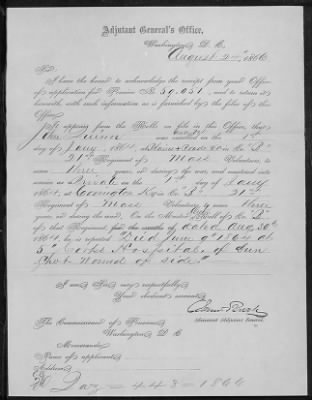 Adjutant General's Office,
Washington, D. C.
August 2nd, 1866
Sir:
I have the honor to acknowledge the receipt from your Office
of application for Pension No. 59,051, and to return it
herewith, with such information as is furnished by the files of this
Office.
It appears from the Rolls on file in this Office, that
John was enrolled on the
day of Jany, 1864, at in Co. "D"
21st Regiment of Mass Volunteers, to
serve three years, or during the war, and mustered into
service as a Private on the day of Jany
1864, at Covington Ky, in Co. "D" 21
Regiment of Mass Volunteers, to serve three
years, or during the war. On the Muster Roll of Co. "D"
of that Regiment, for the months of dated Aug 30th
1864, he is reported "Died June 9th 1864 at
5th Corps Hospital of Gun
Shot Wound of side."
I am, Sir, very respectfully,
Your obedient servant,
Assistant Adjutant General.
The Commissioner of Pensions,
Washington, D. C.
Memoranda:
Name of applicant,
Address,